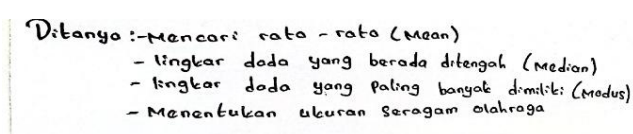 Ditanya :- Mencari rata - rata (Mean)
- lingkar dada yang berada ditengah (Median)
- lingkar dada yang paling banyak dimiliki (Modus)
- Menentukan ukuran seragam olahraga